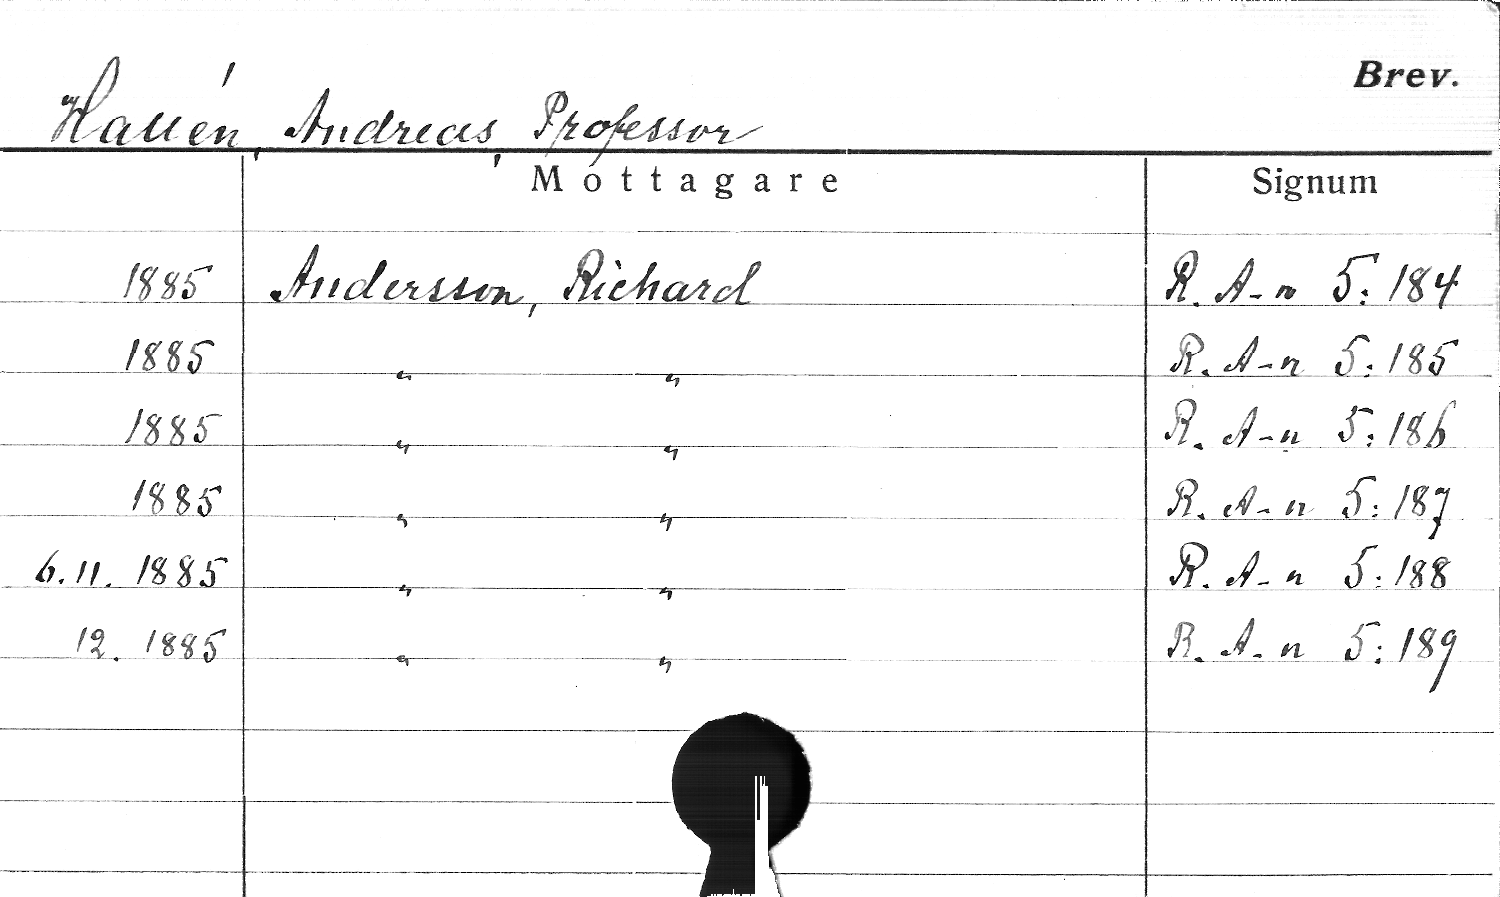 Brev.
Hallén, Andreas, Professor
Mottagare Signum
1885 Andersson, Richard R. A-n 5:184
1885 " " R. A-n 5:185
1885 " " R. A-n 5:186
1885 " " R. A-n 5:187
6.11. 1885 " " R. A-n 5:188
12. 1885 " " R. A-n 5:189